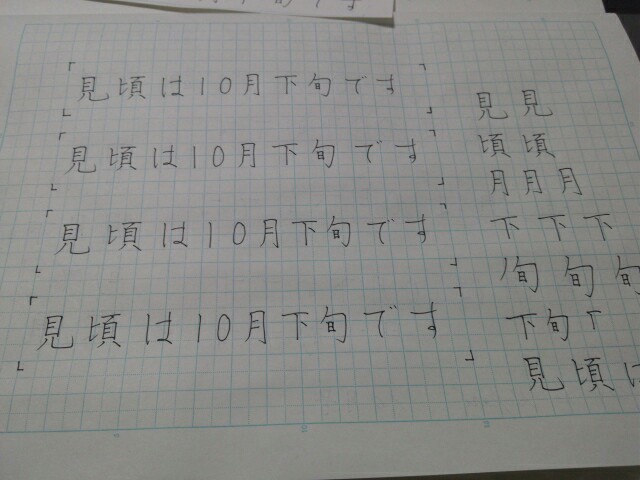 見頃は10月下旬です
見頃は10月下旬です
見頃は10月下旬です
見頃は10月下旬です
見見
頃頃
月月月
下下下
旬旬旬
下旬下
見頃は